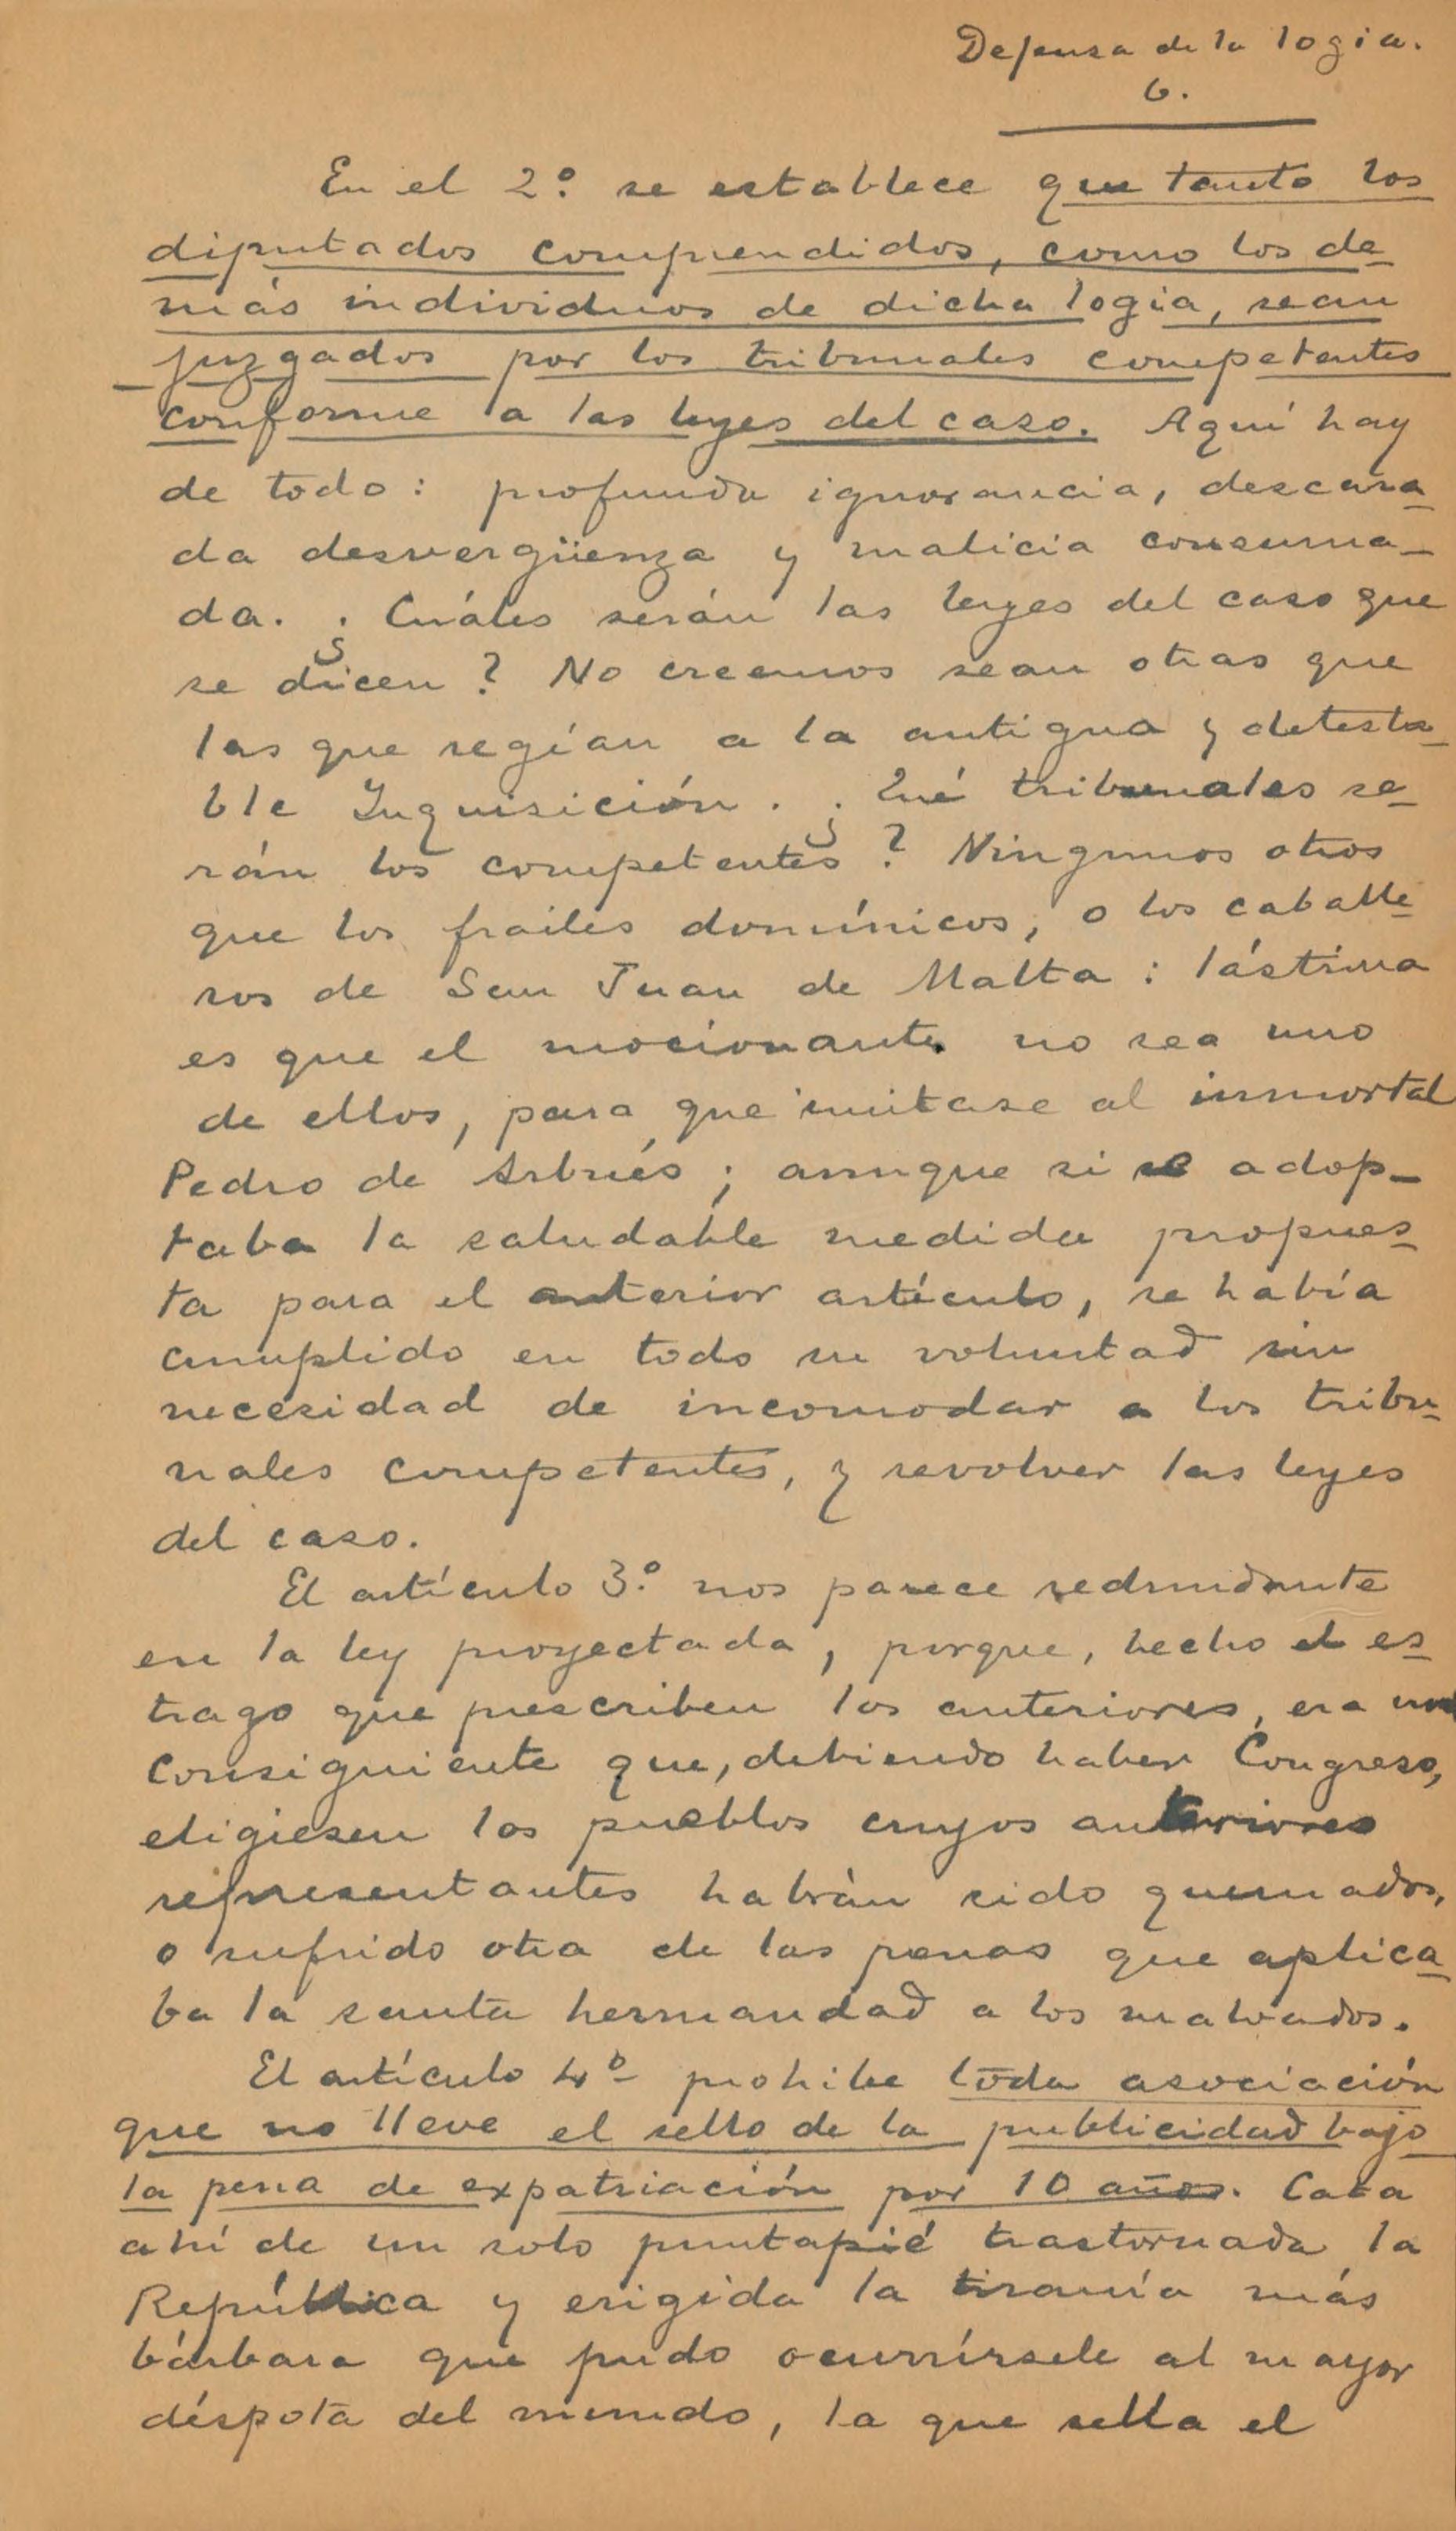 Defensa de la logia.
6.
En el 2º. se establece que tanto los
diputados comprendidos, como los de-
más individuos de dicha logia, sean
juzgados por los tribunales competentes
conforme a las leyes del caso. Aquí hay
de todo: profunda ignorancia, descara-
da desvergüenza y malicia consuma-
da. ¿Cuáles serán las leyes del caso que
se dicen? No creemos sean otras que
las que regían a la antigua y detesta-
ble Inquisición. ¿Qué tribunales se-
rán los competentes? Ningunos otros
que los frailes domínicos, o los caballe-
ros de San Juan de Malta: lástima
es que el mocionante no sea uno
de ellos, para que imitase al inmortal
Pedro de Arbués; aunque si se adop-
taba la saludable medida propues-
ta para el anterior artículo, se había
cumplido en todo su voluntad sin
necesidad de incomodar a los tribu-
nales competentes, y revolver las leyes
del caso.
El artículo 3º. nos parece redundante
en la ley proyectada, porque, hecho el es-
trago que prescriben los anteriores, era
consiguiente que, debiendo haber Congreso,
eligiesen los pueblos cuyos anteriores
representantes habrán sido quemados,
o sufrido otra de las penas que aplica-
ba la santa hermandad a los malvados.
El artículo 4º prohibe toda asociación
que no lleve el sello de la publicidad bajo
la pena de expatriación por 10 años. Cata
ahí de un solo puntapié trastornada la
República y erigida la tiranía más
bárbara que pudo ocurrírsele al mayor
déspota del mundo, la que sella el